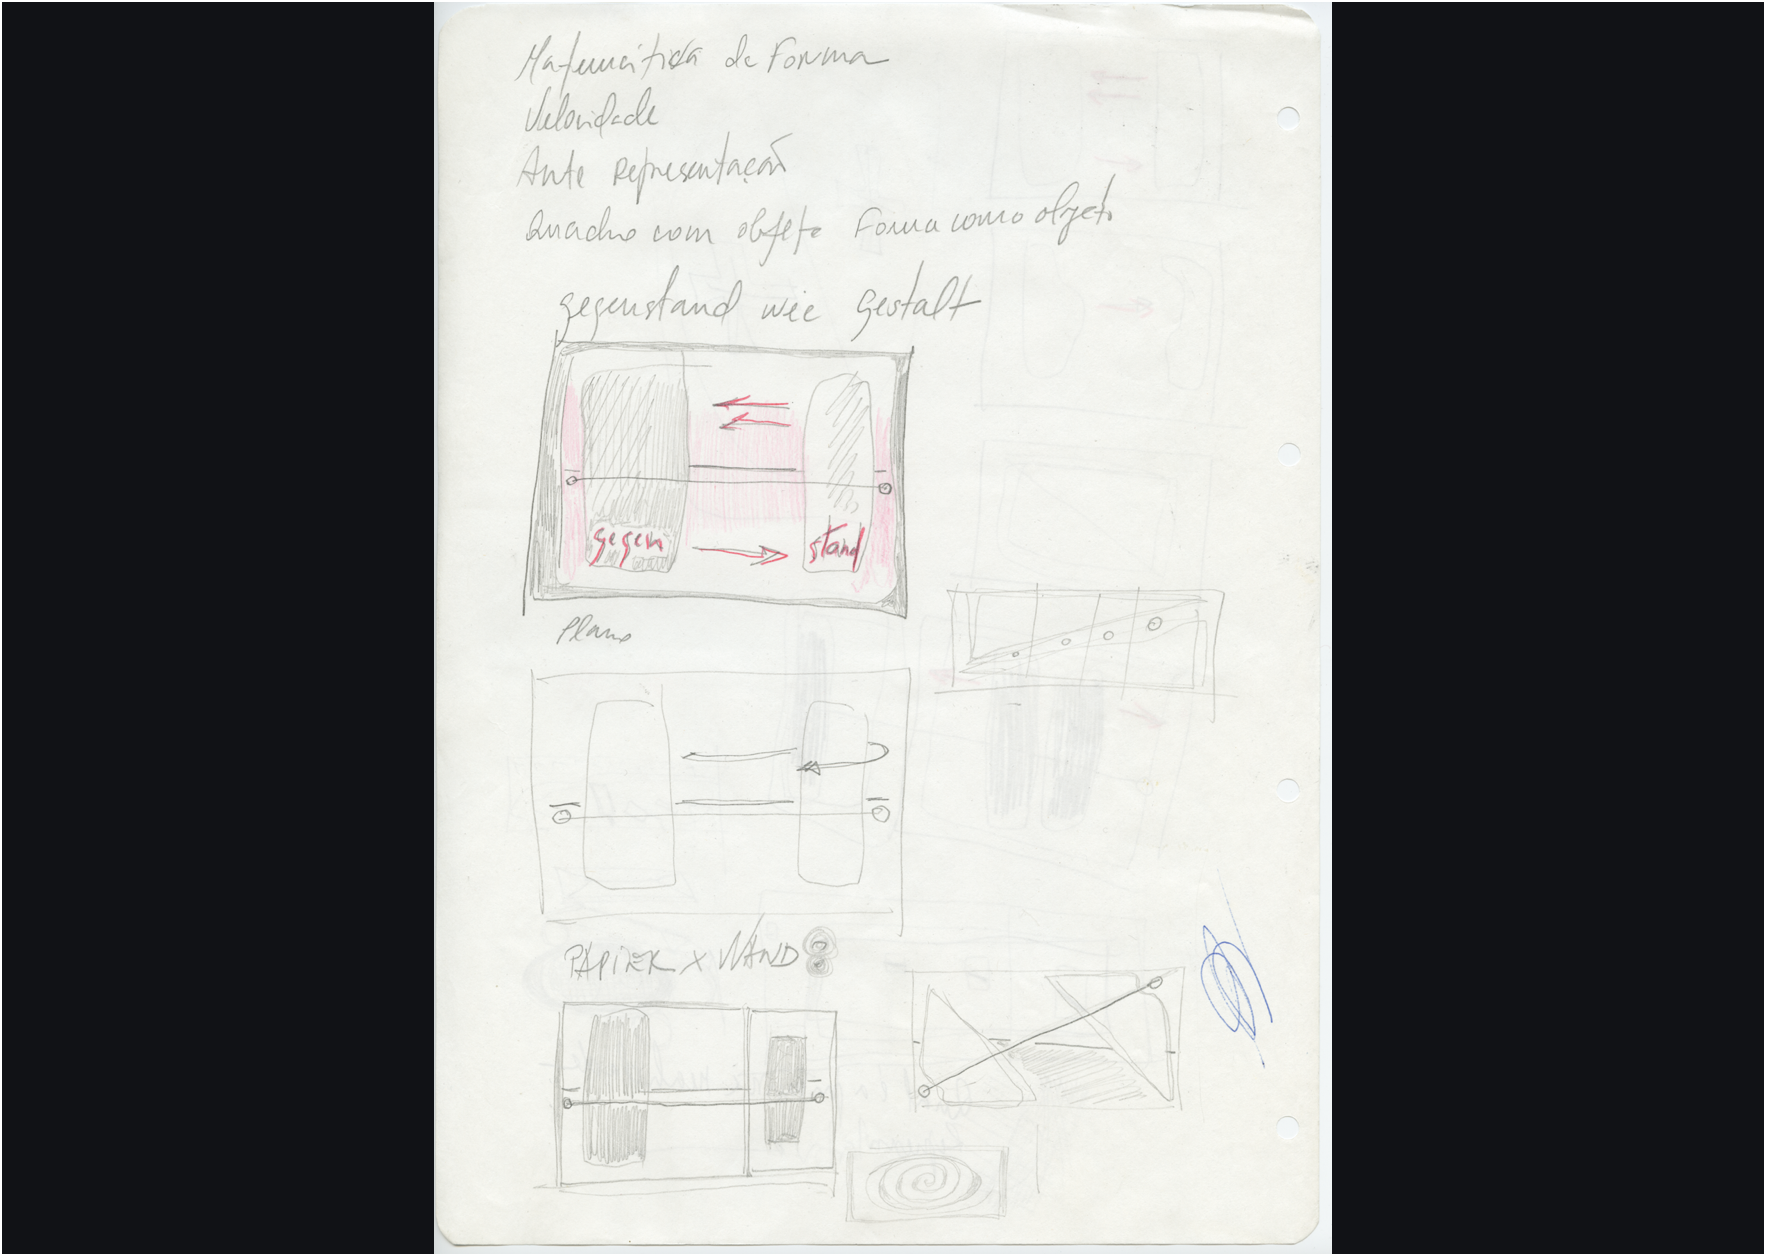 Matemática da Forma
Velocidade
Ante Representação
Quadro com objeto Forma como objeto
gegenstand wie gestalt
gegen stand
Plano
PAPIER X WAND